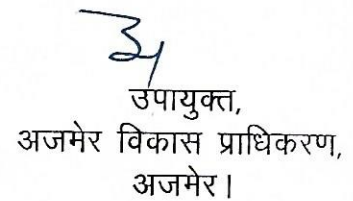 उपायुक्त,
अजमेर विकास प्राधिकरण,
अजमेर।